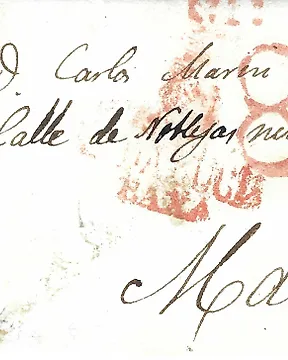 D. Carlos Marin
Calle de Noblejas
Ma